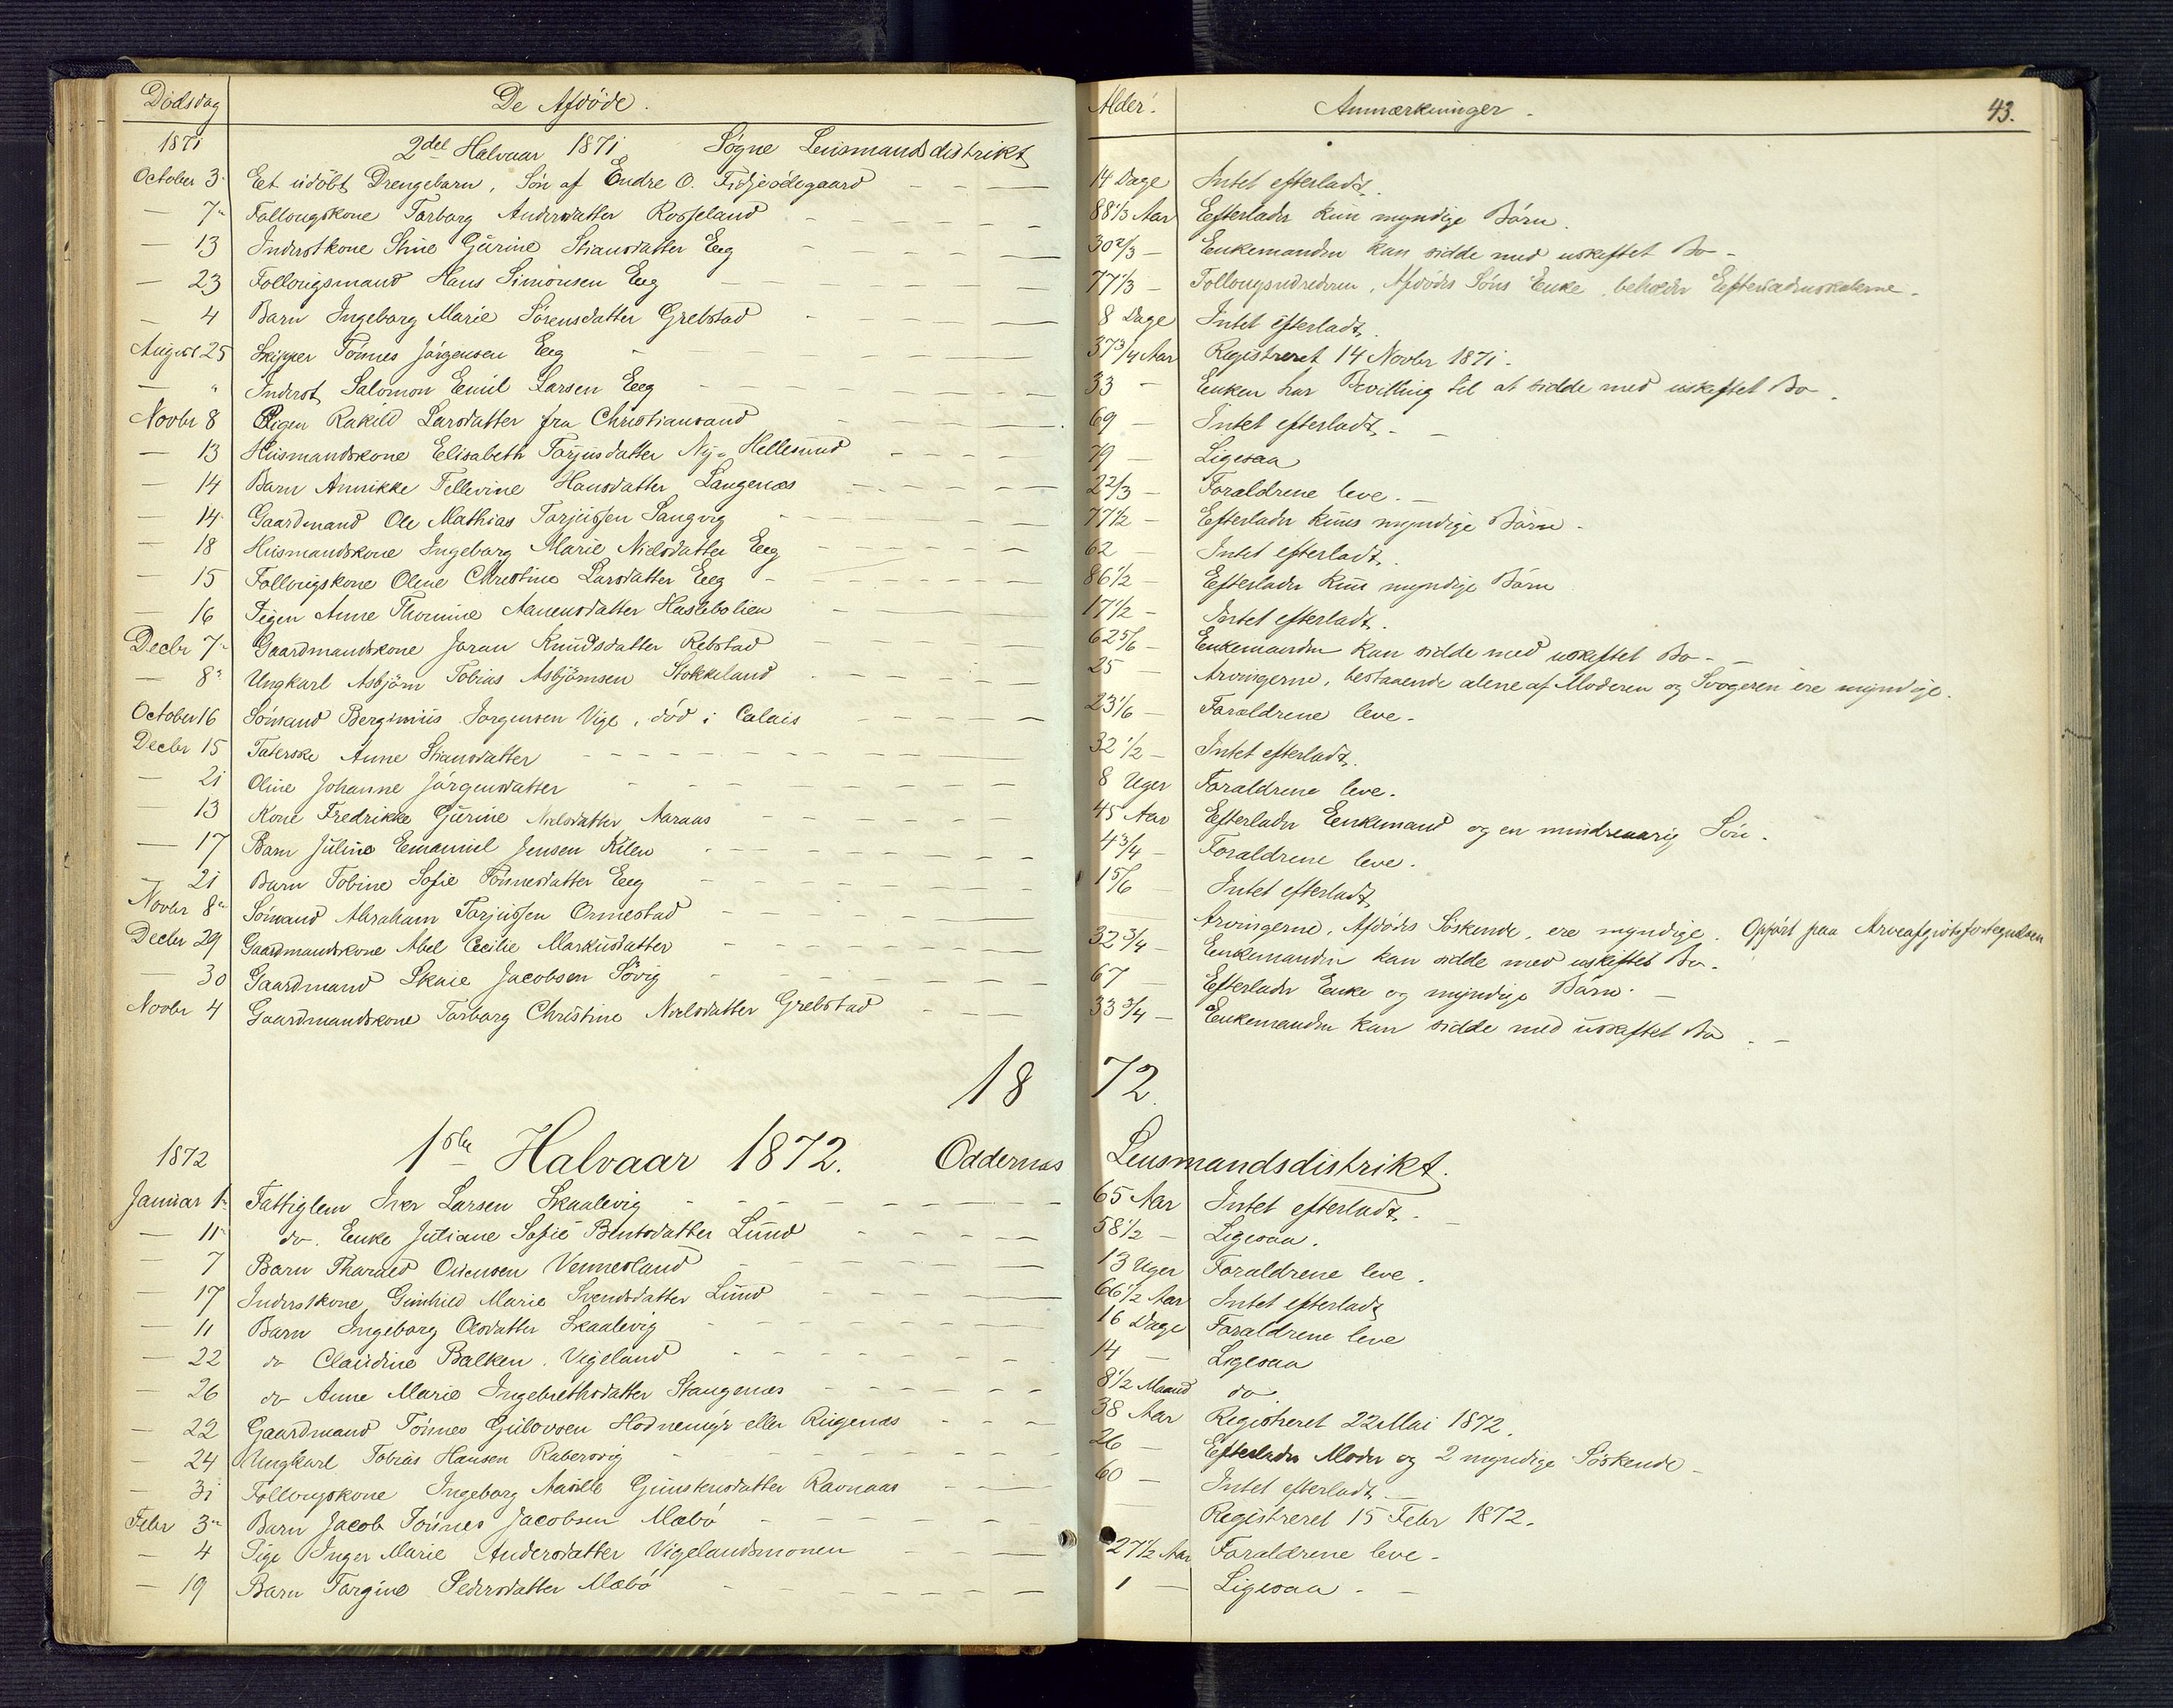 Dødsdag De Afdøde. Alder. Anmærkninger. 43.
1871 2det Halvaar 1871 Søgne Lensmandsdistrikt
October 3. Et udøbt Drengebarn, Søn af Endre O. Fidjeødegaard 14 Dage Intet efterladt.
— 7 Follougskone Tarborg Andersdatter Rosseland 88 1/3 Aar Efterlader kun myndige Børn.
— 13 Inderstkone Stine Gurine Stiansdatter Eeg 30 2/3 — Enkemanden kan sidde med uskiftet Bo —
— 23 Follougsmand Hans Simonsen Eeg 77 1/3 — Afdødes Søns Enke
— 4 Barn Ingeborg Marie Sørensdatter Grebstad 8 Dage Intet efterladt.
August 25 Skipper Tønnes Jørgensen Eeg 37 3/4 Aar Registreret 14 Novbr 1871.
— " Inderst Salomon Emil Larsen Eeg 33 — Enken har Bevilling til at sidde med uskiftet Bo.
Novbr 8 Pigen Rakild Larsdatter fra Christiansand 69 — Intet efterladt.
— 13 Husmandskone Elisabeth Torjusdatter Ny-Hellesund 79 — Ligesaa
— 14 Barn Annikke Tellevine Hansdatter Langenæs 2 2/3 — Forældrene leve.
— 14 Gaardmand Ole Mathias Torjussen Langvig 77 1/2 — Efterlader kuns myndige Børn.
— 18 Husmandskone Ingeborg Marie Nielsdatter Eeg 62 — Intet efterladt.
— 15 Follougskone Olene Christine Larsdatter Eeg 86 1/2 — Efterlader kun myndige Børn
— 16 Pigen Anne Thomine Aanensdatter Haslebolien 17 1/2 — Intet efterladt.
Decbr 7 Gaardmandskone Joran Knudsdatter Rebstad 62 5/6 — Enkemanden kan sidde med uskiftet Bo —
— 8 Ungkarl Asbjørn Tobias Asbjørnsen Stokkeland 25 — Arvingerne, bestaaende alene af Moderen og Svogeren ere myndige.
October 16 Sømand Berginius Jørgensen Vige, død i Calais 23 1/6 — Forældrene leve.
Decbr 15 Taterske Anne Stiansdatter 32 1/2 — Intet efterladt.
— 21 Oline Johanne Jørgensdatter 8 Uger Forældrene leve.
— 13 Kone Fredrikke Gurine Nielsdatter Aaraas 45 Aar Efterlader Enkemand og en mindreaarig Søn.
— 17 Barn Juline Emanuel Jensen Kilen 4 3/4 — Forældrene leve.
— 21 Barn Tobine Sofie Tønnesdatter Eeg 1 5/6 Intet efterladt
Novbr 8 Sømand Abraham Torjussen Ormestad Arvingerne, Afdødes Søskende, ere myndige. Opført paa Arveafgiftsfortegnelsen
Decbr 29 Gaardmandskone Abel Cecilie Markusdatter 32 3/4 — Enkemanden kan sidde med uskiftet Bo.
— 30 Gaardmand Skaie Jacobsen Søvig 67 — Efterlader Enke og myndige Børn.
Novbr 4 Gaardmandskone Tarborg Christine Nielsdatter Grebstad 33 3/4 — Enkemanden kan sidde med uskiftet Bo
18 72.
1872 1ste Halvaar 1872. Oddernæs Lensmandsdistrikt.
Januar 1 Fattiglem Iver Larsen Skaalevig 65 Aar Intet efterladt.
— 11 do. Enke Juliane Sofie Bentsdatter Lund 58 1/2 — Ligesaa.
— 7 Barn Tharald Osensen Vennesland 13 Uger Forældrene leve.
— 17 Inderstkone, Gunhild Marie Svendsdatter Lund 66 1/2 Aar Intet efterladt
— 11 Barn Ingeborg Olsdatter Skaalevig 16 Dage Forældrene leve
— 22 do Claudine Balken. Vigeland 14 — Ligesaa
— 26 do Anne Marie Ingebrethsdatter Stangenæs 8 1/2 Maaned do
— 22 Gaardmand Tønnes Gulovsen Hodnemyr eller Rugenæs 38 Aar Registreret 22 Mai 1872.
— 24 Ungkarl Tobias Hansen Rabersvig 26 — Efterlader Moder og 2 myndige Søskende —
— 31 Follougskone Ingeborg Aasille Gunstensdatter Ravnaas 60 — Intet efterladt —
Febr 3 Barn Jacob Tønnes Jacobsen Mæbø — Registreret 15 Febr 1872.
— 4 Pige Inger Marie Andersdatter Vigelandsmonen 27 1/2 Aar Forældrene leve —
— 19 Barn Targine Pedersdatter Mæbø 1 — Ligesaa —